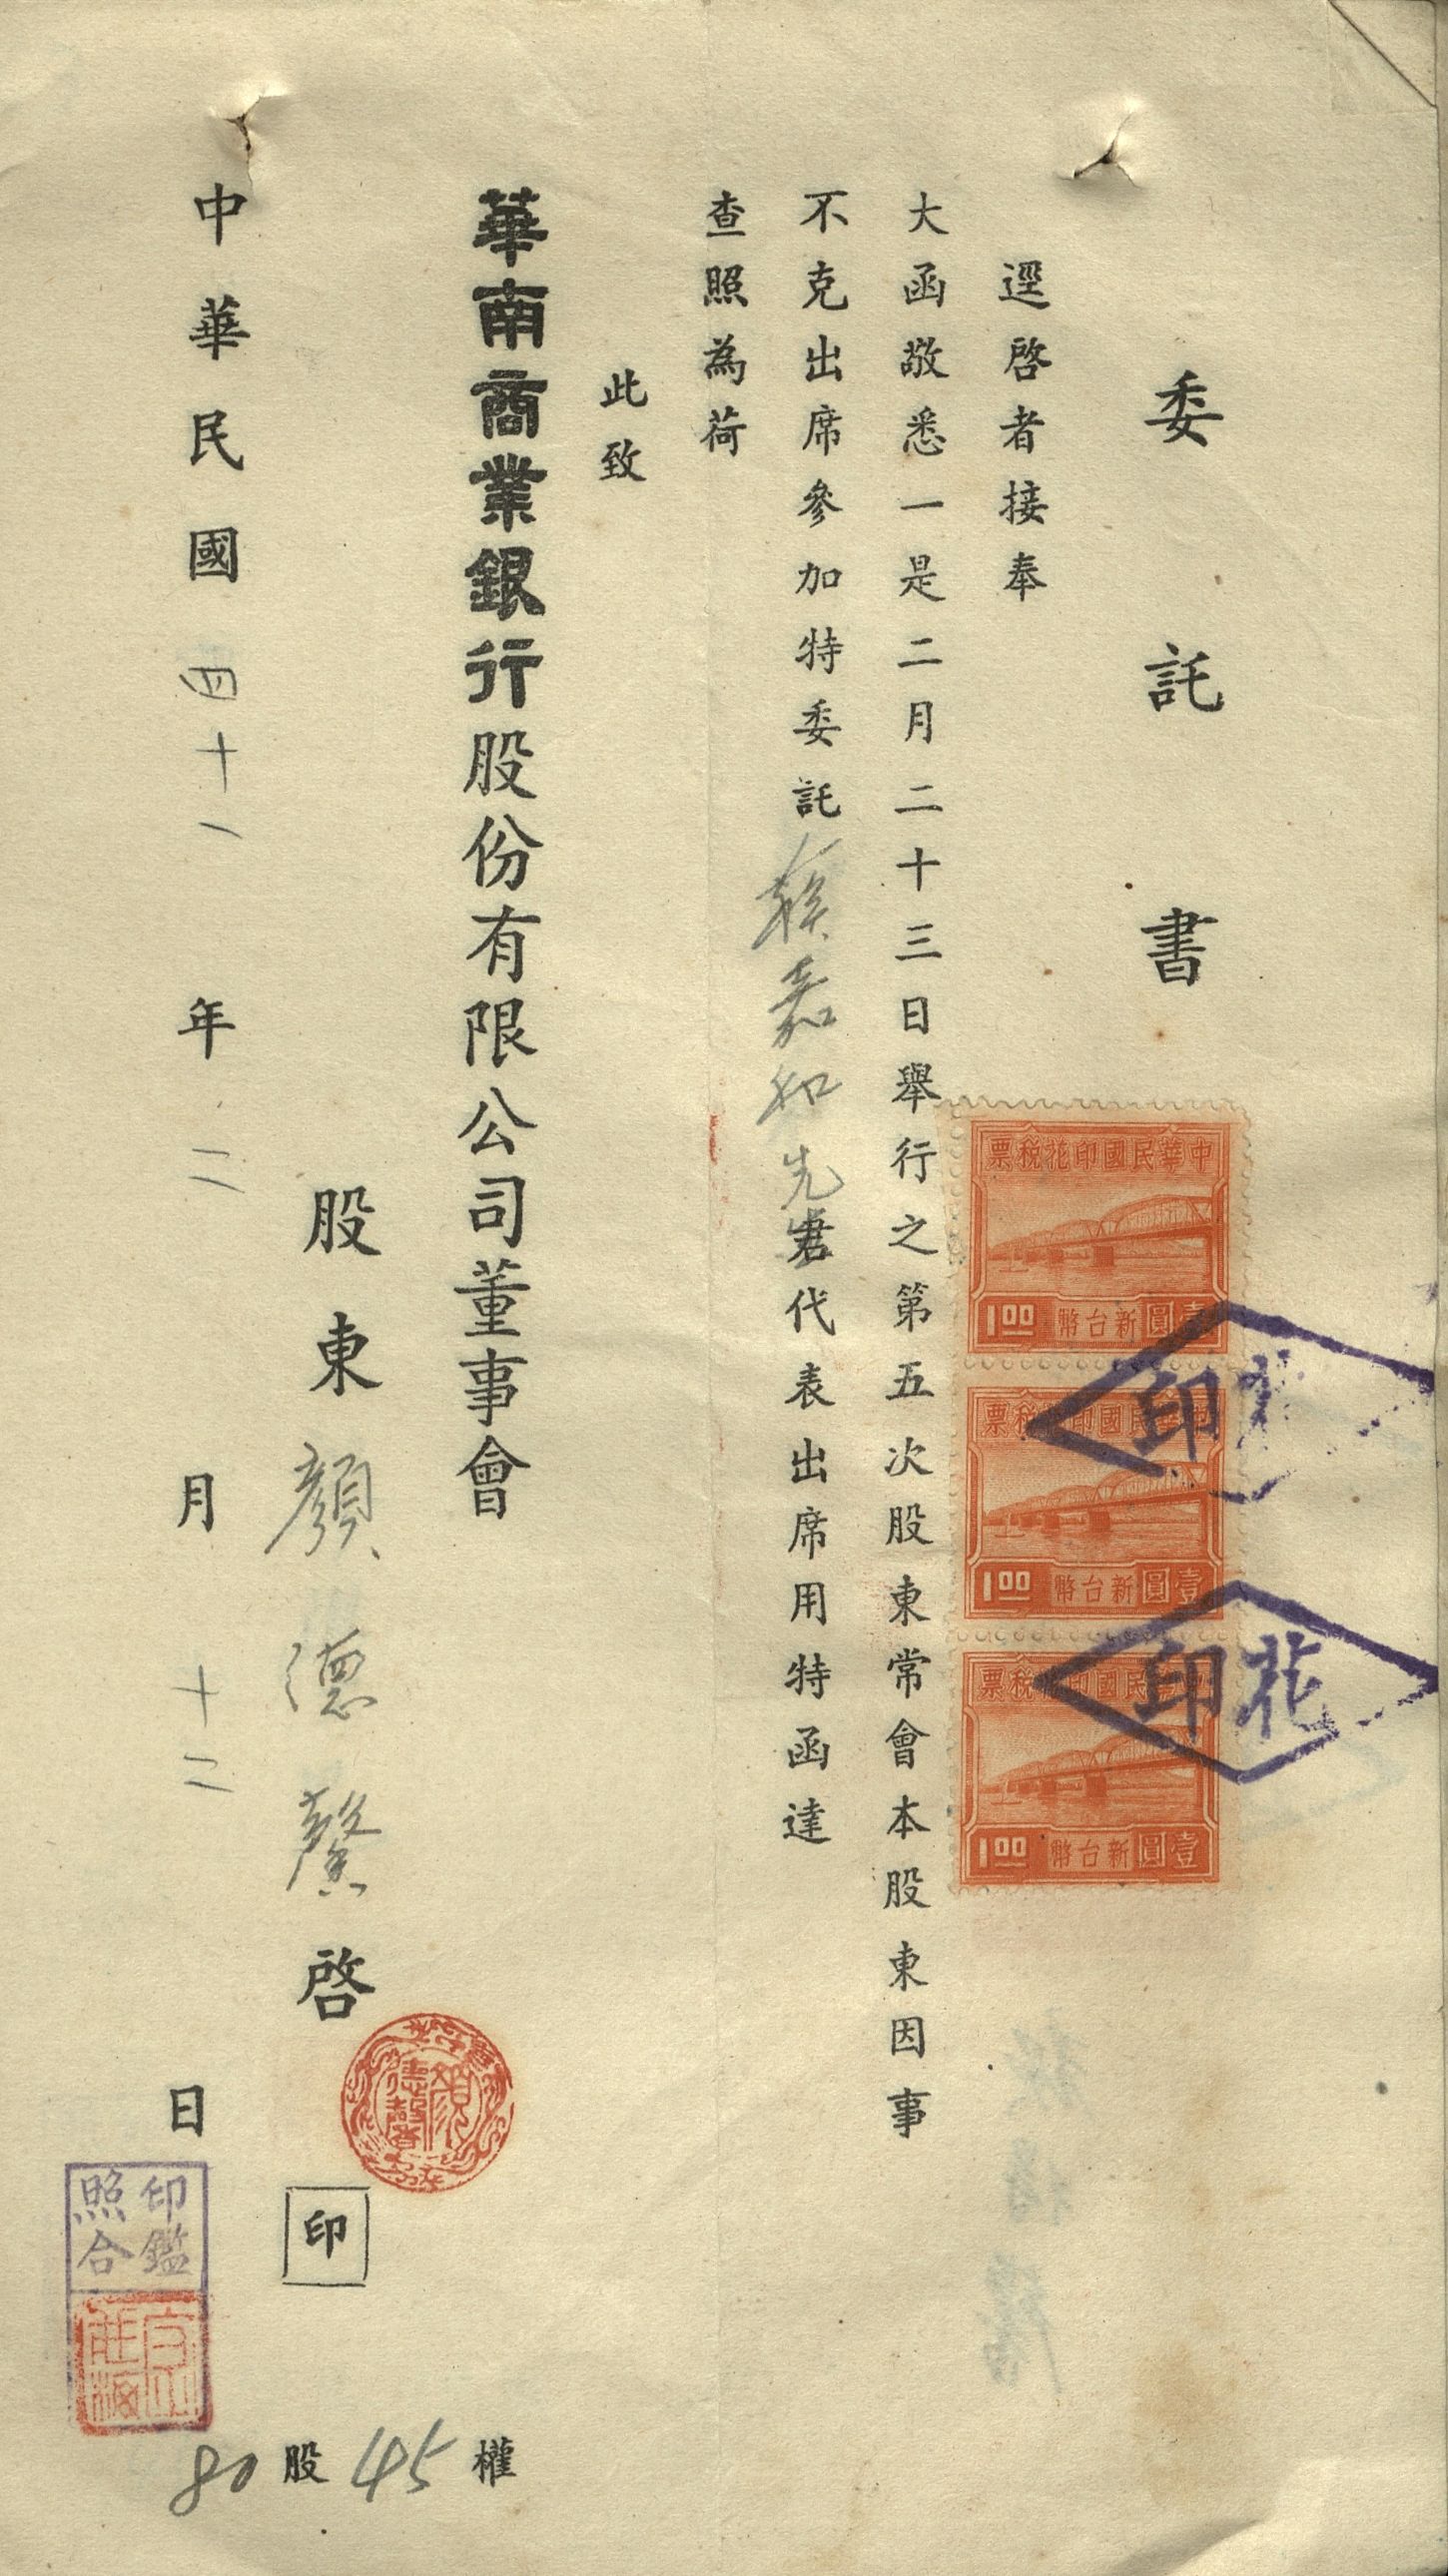 委託書
逕啓者接奉
大函敬悉一是二月二十三日舉行之第五次股東常會本股東因事
不克出席參加特委託賴嘉和先君代表出席用特函達
查照為荷
此致
華南商業銀行股份有限公司董事會
股東顏德馨啓
印
中華民國四十一年二月十二日
80股45權
中華民國印花稅票
1.00新台幣壹圓
國印花稅票
1.00新台幣壹圓
民國印花稅票
1.00新台幣壹圓
印
印花
顏德馨
印鑑照合